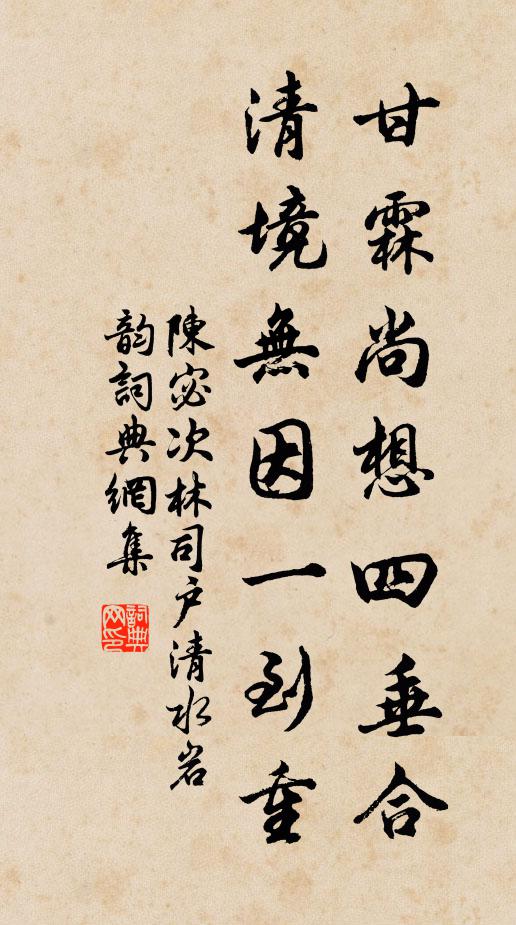 甘霖尚想四垂合
清境無因一到重
陳宓次林司戶清水岩
韵詞典網集
詞典网印